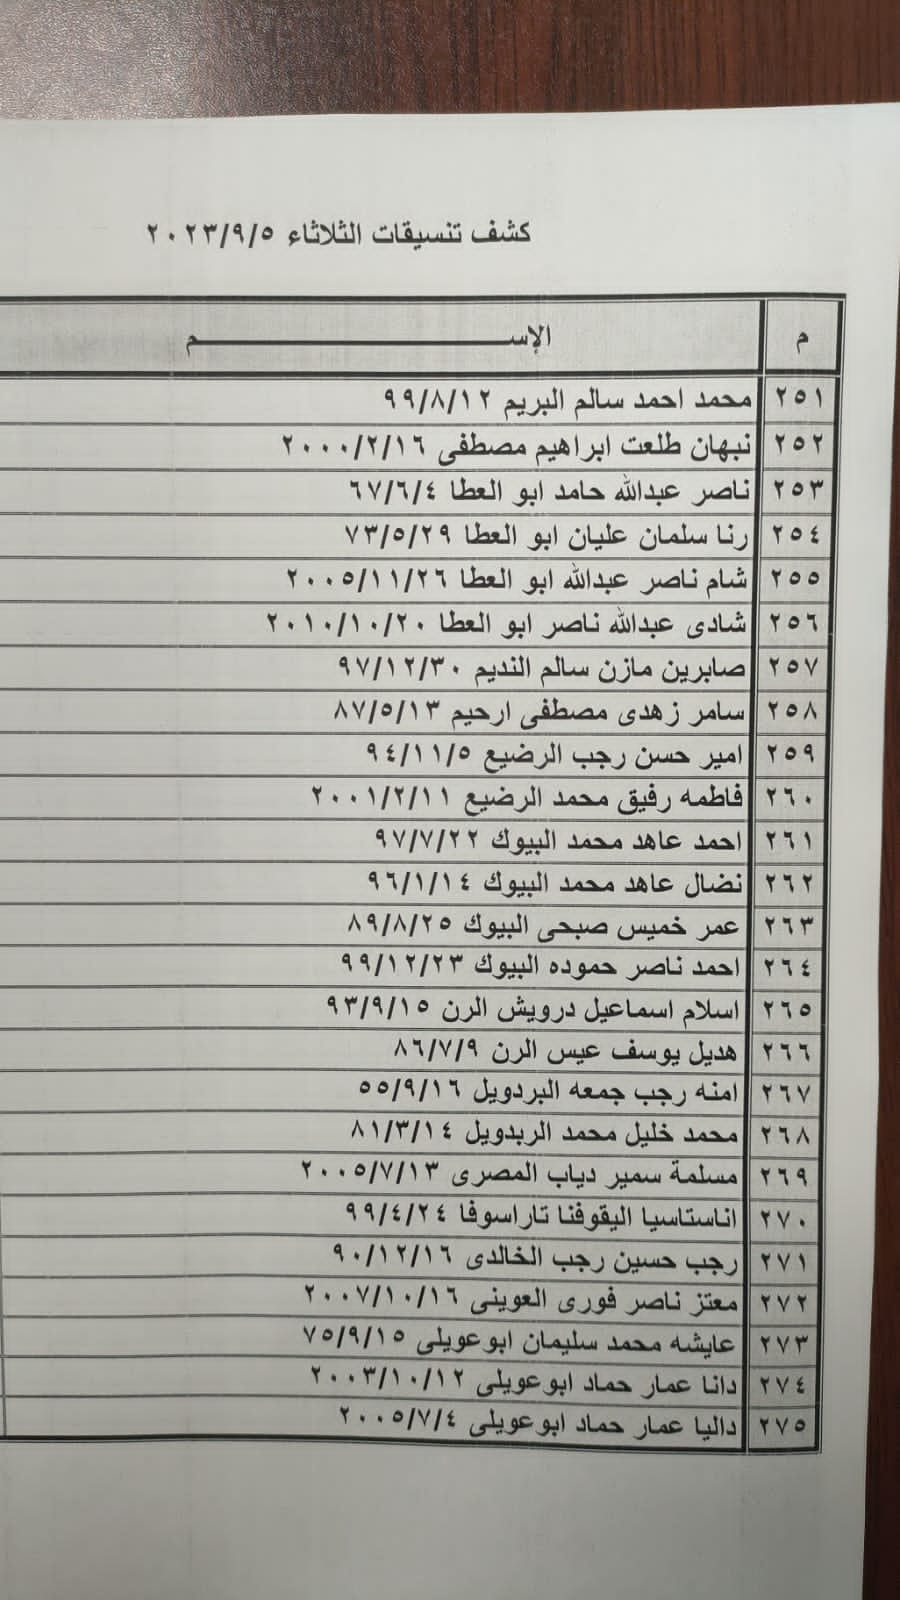 كشف تنسيقات الثلاثاء ٢٠٢٣/٩/٥
م الإســـــــــــــــــــــم
٢٥١ محمد احمد سالم البريم ٩٩/٨/١٢
٢٥٢ نبهان طلعت ابراهيم مصطفى ٢٠٠٠/٢/١٦
٢٥٣ ناصر عبدالله حامد ابو العطا ٦٧/٦/٤
٢٥٤ رنا سلمان عليان ابو العطا ٧٣/٥/٢٩
٢٥٥ شام ناصر عبدالله ابو العطا ٢٠٠٥/١١/٢٦
٢٥٦ شادى عبدالله ناصر ابو العطا ٢٠١٠/١٠/٢٠
٢٥٧ صابرين مازن سالم النديم ٩٧/١٢/٣٠
٢٥٨ سامر زهدى مصطفى ارحيم ٨٧/٥/١٣
٢٥٩ امير حسن رجب الرضيع ٩٤/١١/٥
٢٦٠ فاطمه رفيق محمد الرضيع ٢٠٠١/٢/١١
٢٦١ احمد عاهد محمد البيوك ٩٧/٧/٢٢
٢٦٢ نضال عاهد محمد البيوك ٩٦/١/١٤
٢٦٣ عمر خميس صبحى البيوك ٨٩/٨/٢٥
٢٦٤ احمد ناصر حموده البيوك ٩٩/١٢/٢٣
٢٦٥ اسلام اسماعيل درويش الرن ٩٣/٩/١٥
٢٦٦ هديل يوسف عيس الرن ٨٦/٧/٩
٢٦٧ امنه رجب جمعه البردويل ٥٥/٩/١٦
٢٦٨ محمد خليل محمد الربدويل ٨١/٣/١٤
٢٦٩ مسلمة سمير دياب المصرى ٢٠٠٥/٧/١٣
٢٧٠ اناستاسيا اليقوفنا تاراسوفا ٩٩/٤/٢٤
٢٧١ رجب حسين رجب الخالدى ٩٠/١٢/١٦
٢٧٢ معتز ناصر فورى العوينى ٢٠٠٧/١٠/١٦
٢٧٣ عايشه محمد سليمان ابوعويلى ٧٥/٩/١٥
٢٧٤ دانا عمار حماد ابوعويلى ٢٠٠٣/١٠/١٢
٢٧٥ داليا عمار حماد ابوعويلى ٢٠٠٥/٧/٤